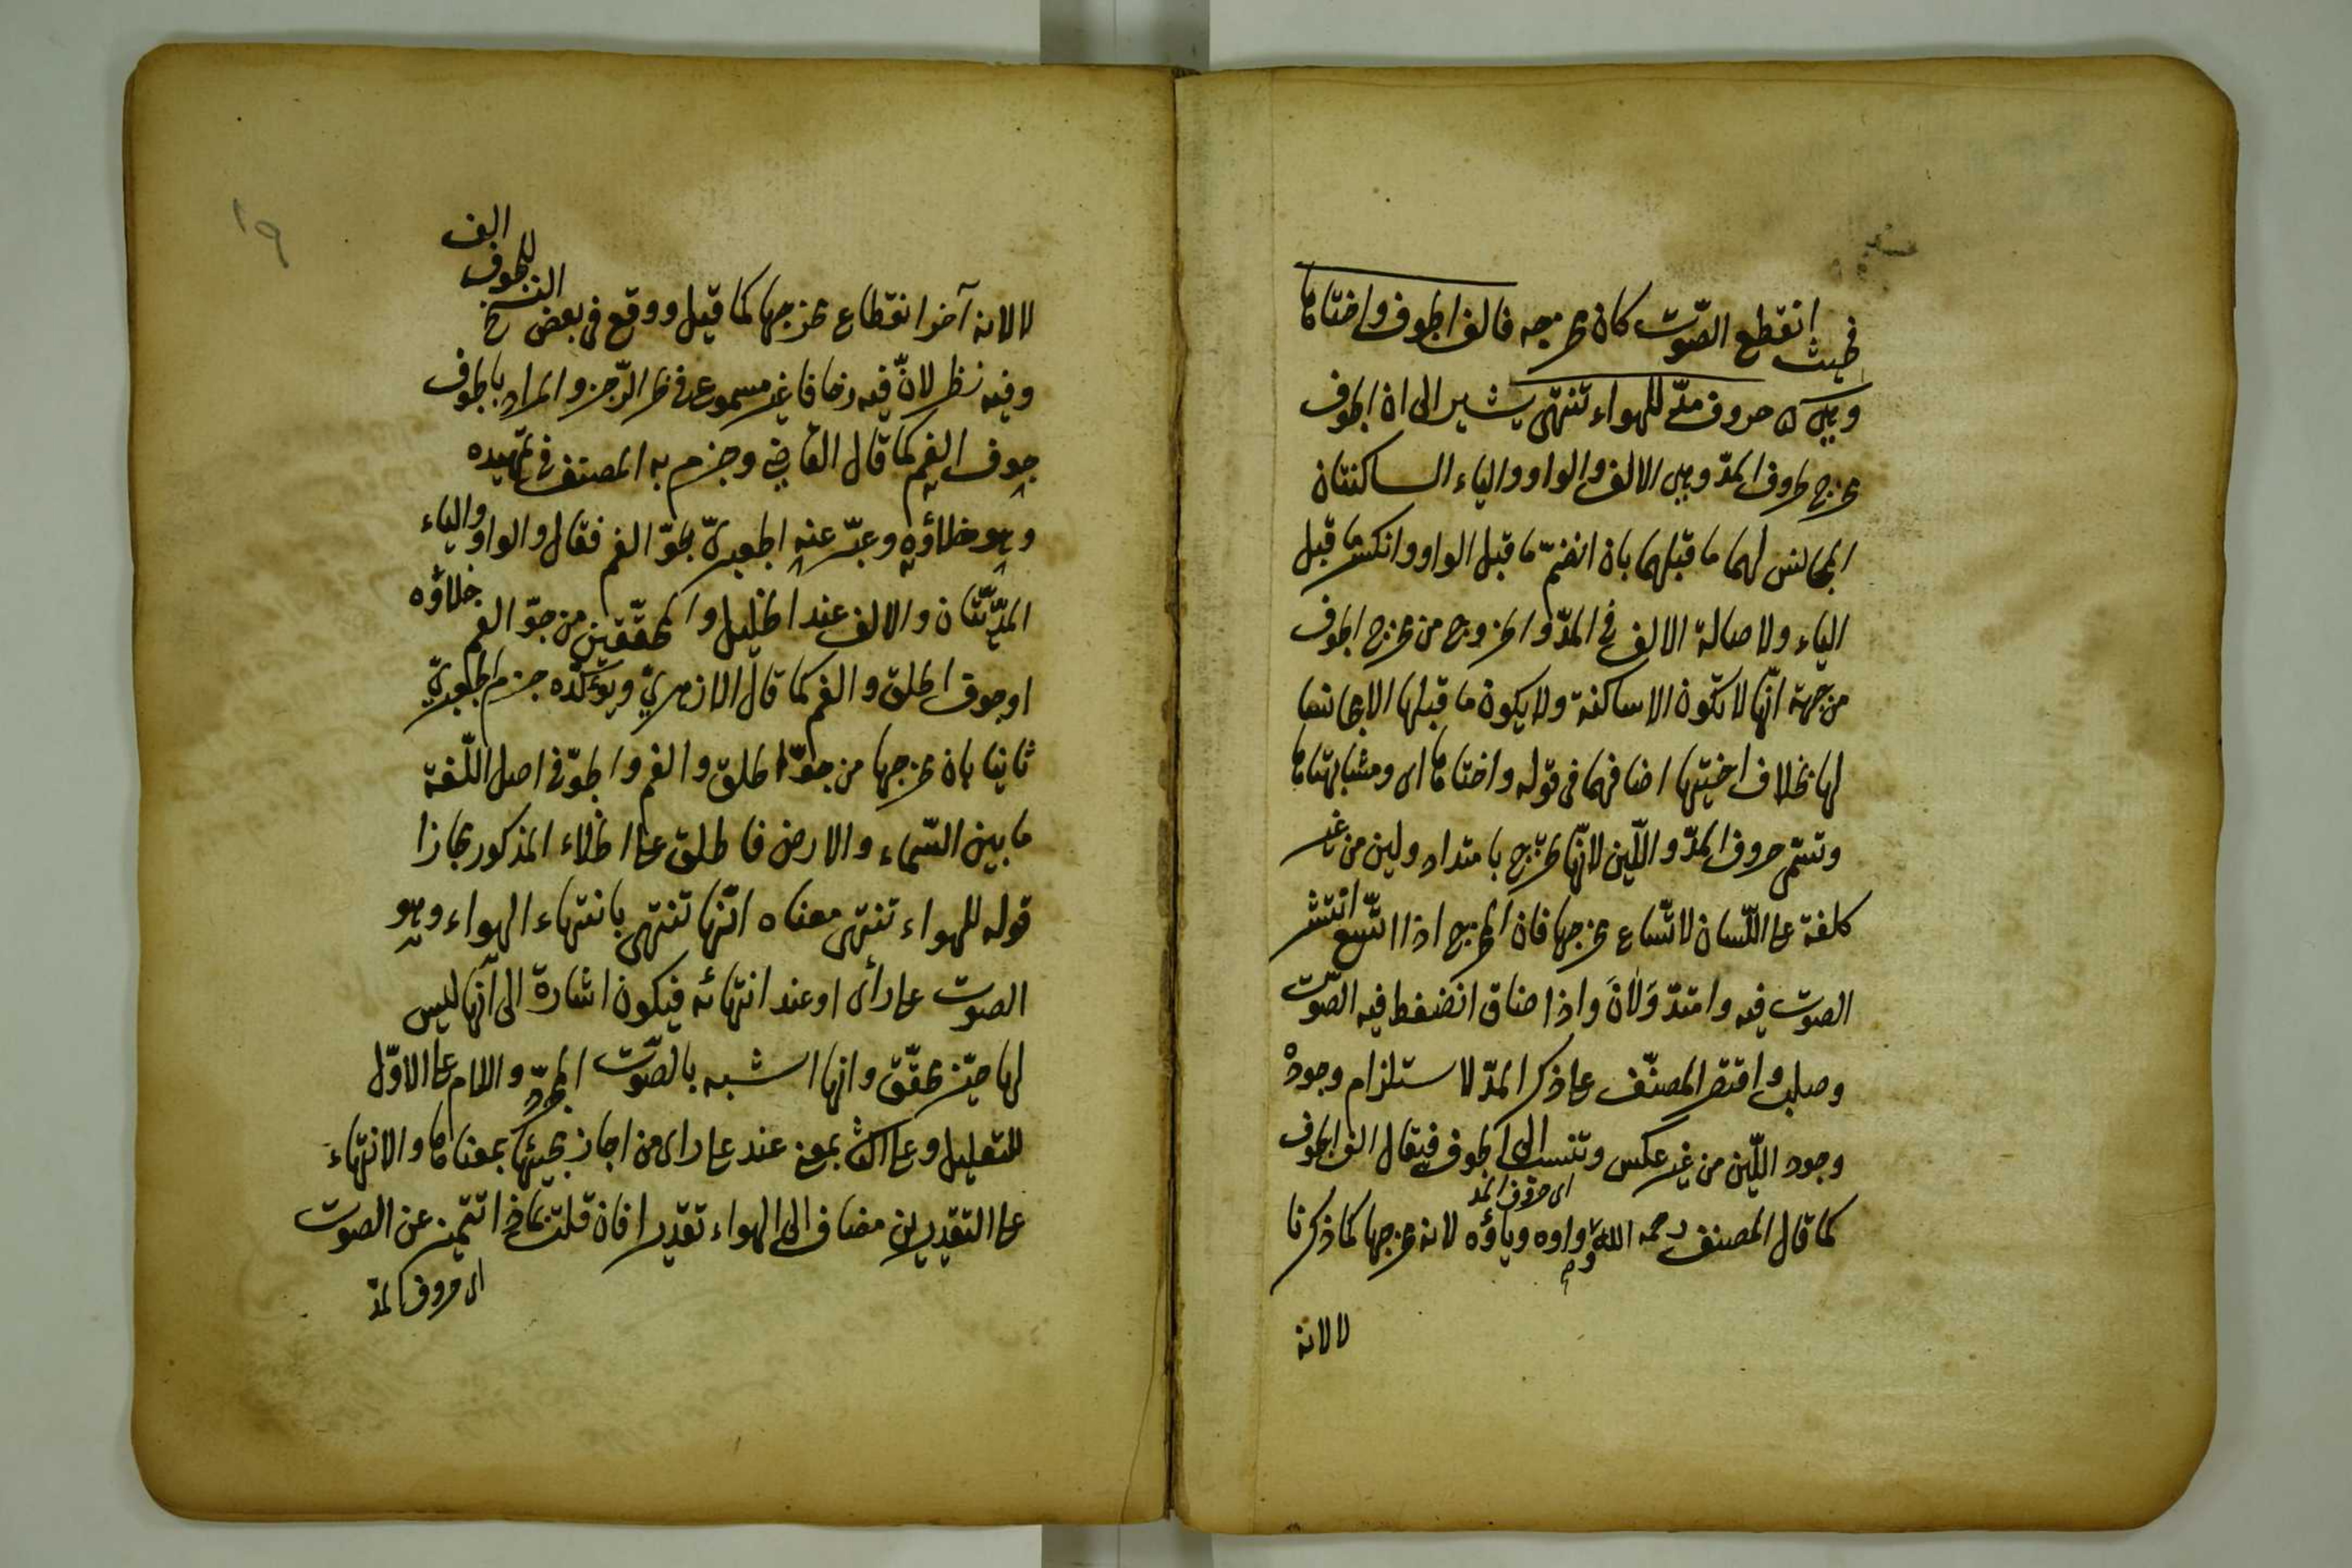 فحيث انقطع الصّوت كان مخرجه فالف الجوف واختاها
وهي ۵ حروف مدّ للهواء تنتهى يشير الى ان الجوف
مخرج حروف المدّ وهى الالف والواو والياء الساكنتان
المجانس لهما ما قبلهما بان انضمّ ما قبل الواو وانكسر ما قبل
الياء ولاصالة الالف فى المدّ والخروج من مخرج الجوف
من جهة انّها لا تكون الا ساكنة ولا يكون ما قبلها الا مجانسا
لها بخلاف اختيها اضافهما فى قوله واختاها اى ومشابهتاها
وتسمّى حروف المدّ واللّين لانّها تخرج بامتداد ولين من غير
كلفة على اللّسان لاتّساع مخرجها فان المخرج اذا اتّسع انتشر
الصوت فيه وامتدّ وَلَانَ واذا ضاق انضغط فيه الصّوت
وصلب واقتصر المصنّف على ذكر المدّ لاستلزام وجوده
وجود اللّين من غير عكس وتنسب الى الجوف فيقال الف الجوف
اى حروف المد
كما قال المصنف رحمه الله وواوه وياؤه لانه مخرجها كما ذكرنا
لا لانه
الف
الجوف
لا لانه آخر انقطاع مخرجها كما قيل ووقع فى بعض النسخ
وفيه نظر لانّ فيه زحافا غير مسموع فى بحر الرّجز والمراد بالجوف
جوف الفم كما قال الفاضى وجزم به المصنف فى تمهيده
وهو خلاؤه وعبّر عنه الجعبرىّ بجوّ الفم فقال والواو والياء
المدّيّتان والالف عند الخليل والمحققين من جوّ الفم خلاؤه
او جوف الحلق والفم كما قال الازهرىّ ويؤكّده جزم الجعبرىّ
ثانيا بان مخرجها من جوّ الحلق والفم والجوّ فى اصل اللّغة
ما بين السّماء والارض فاطلق على الخلاء المذكور مجازا
قوله للهواء تنتهى معناه انّها تنتهى بانتهاء الهواء وهو
الصوت على رأى او عند انتهائه فيكون اشارة الى انّها ليس
لها حيّز محقّق وانها اشبه بالصّوت المجرّد واللام على الاوّل
للتعليل وعلى الثانى بمعنى عند على راى من اجاز مجيئها بمعناها والانتهاء
على التقديرين مضاف الى الهواء تقديرا فان قلت بماذا تتميز عن الصوت
اى حروف المدّ